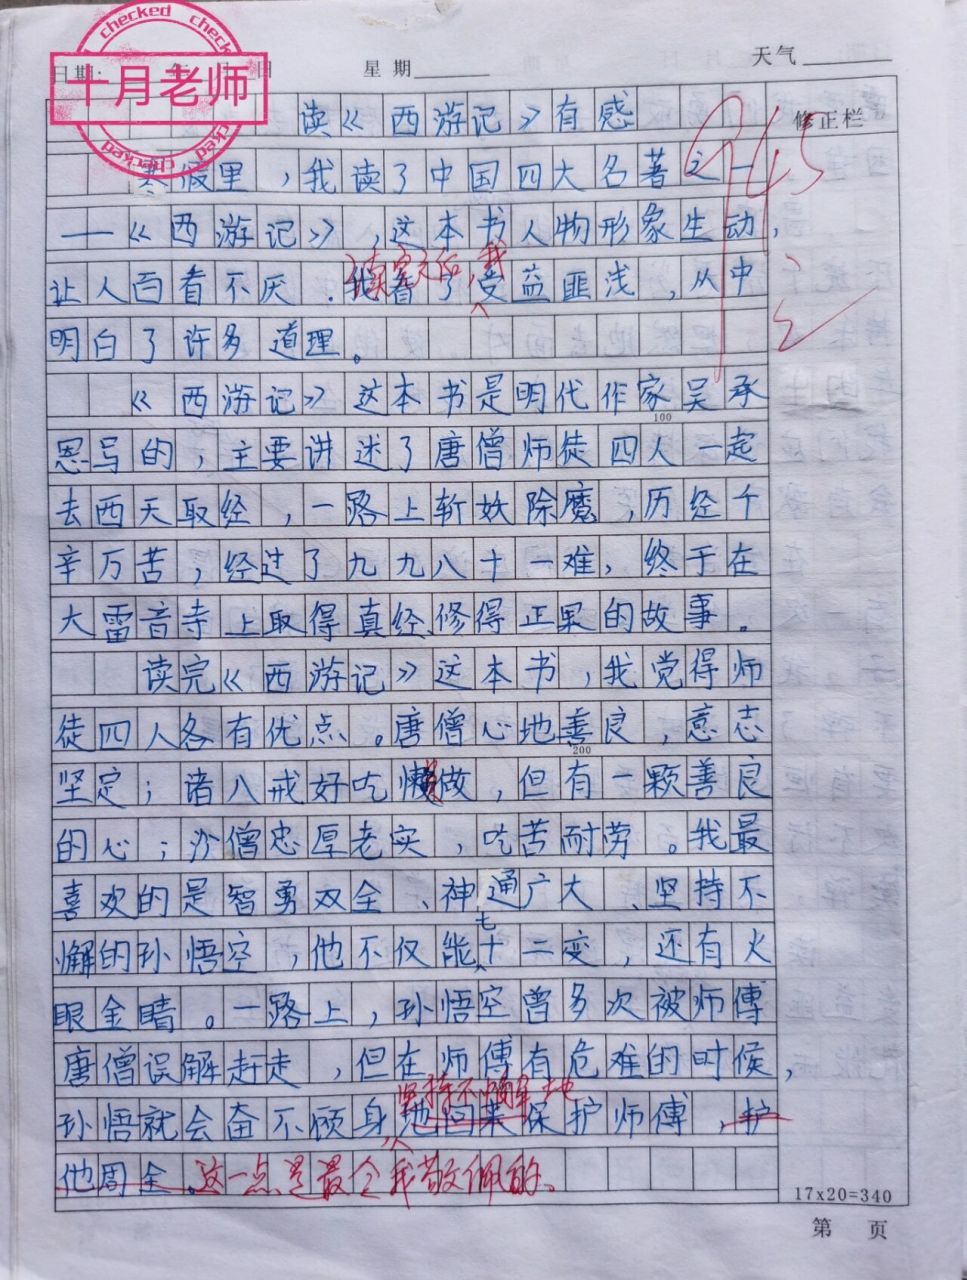 checked checked
日期: 年 月 日 星期 天气
十月老师
checked checked
读《西游记》有感
修正栏
寒假里，我读了中国四大名著之一
——《西游记》，这本书人物形象生动，
读完后，我
让人百看不厌．我看了受益匪浅，从中
明白了许多道理。
《西游记》这本书是明代作家吴承
100
恩写的，主要讲述了唐僧师徒四人一起
去西天取经，一路上斩妖除魔，历经千
辛万苦，经过了九九八十一难，终于在
大雷音寺上取得真经、修得正果的故事。
读完《西游记》这本书，我觉得师
徒四人各有优点。唐僧心地善良，意志
200
坚定；诸八戒好吃懒做，但有一颗善良
的心；沙僧忠厚老实，吃苦耐劳。我最
喜欢的是智勇双全、神通广大、坚持不
七
懈的孙悟空，他不仅能十二变，还有火
眼金睛。一路上，孙悟空曾多次被师傅
唐僧误解赶走，但在师傅有危难的时候，
坚持不懈地
孙悟就会奋不顾身地回来保护师傅，护
他周全。这一点是最令我敬佩的。
17x20=340
第 页